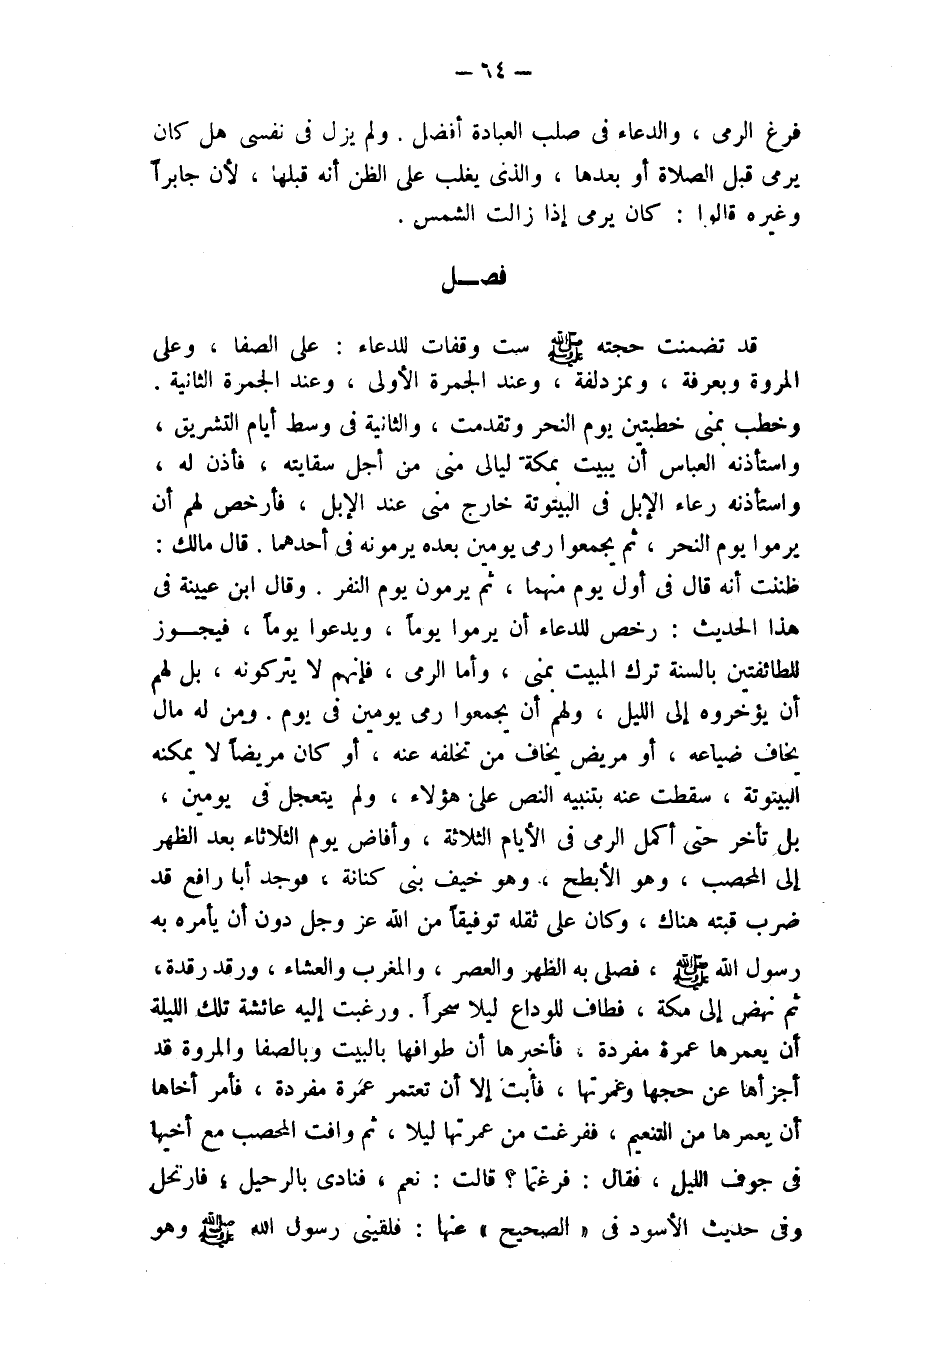 — ٦٤ —
فرغ الرمى ، والدعاء فى صلب العبادة أفضل . ولم يزل فى نفسى هل كان
يرمى قبل الصلاة أو بعدها ، والذى يغلب على الظن أنه قبلها ، لأن جابراً
وغيره قالوا : كان يرمى إذا زالت الشمس .
فصـــل
قد تضمنت حجته ﷺ ست وقفات للدعاء : على الصفا ، وعلى
المروة وبعرفة ، وبمزدلفة ، وعند الجمرة الأولى ، وعند الجمرة الثانية .
وخطب بمنى خطبتين يوم النحر وتقدمت ، والثانية فى وسط أيام التشريق ،
واستأذنه العباس أن يبيت بمكة ليالى منى من أجل سقايته ، فأذن له ،
واستأذنه رعاء الإبل فى البيتوتة خارج منى عند الإبل ، فأرخص لهم أن
يرموا يوم النحر ، ثم يجمعوا رمى يومين بعده يرمونه فى أحدهما . قال مالك :
ظننت أنه قال فى أول يوم منهما ، ثم يرمون يوم النفر . وقال ابن عيينة فى
هذا الحديث : رخص للدعاء أن يرموا يوماً ، ويدعوا يوماً ، فيجـــوز
للطائفتين بالسنة ترك المبيت بمنى ، وأما الرمى ، فإنهم لا يتركونه ، بل لهم
أن يؤخروه إلى الليل ، ولهم أن يجمعوا رمى يومين فى يوم . ومن له مال
يخاف ضياعه ، أو مريض يخاف من تخلفه عنه ، أو كان مريضاً لا يمكنه
البيتوتة ، سقطت عنه بتنبيه النص على هؤلاء ، ولم يتعجل فى يومين ،
بل تأخر حتى أكمل الرمى فى الأيام الثلاثة ، وأفاض يوم الثلاثاء بعد الظهر
إلى المحصب ، وهو الأبطح ، وهو خيف بنى كنانة ، فوجد أبا رافع قد
ضرب قبته هناك ، وكان على ثقله توفيقاً من الله عز وجل دون أن يأمره به
رسول الله ﷺ ، فصلى به الظهر والعصر ، والمغرب والعشاء ، ورقد رقدة ،
ثم نهض إلى مكة ، فطاف للوداع ليلا سحراً . ورغبت إليه عائشة تلك الليلة
أن يعمرها عمرة مفردة ، فأخبرها أن طوافها بالبيت وبالصفا والمروة قد
أجزأها عن حجها وعمرتها ، فأبت إلا أن تعتمر عمرة مفردة ، فأمر أخاها
أن يعمرها من التنعيم ، ففرغت من عمرتها ليلا ، ثم وافت المحصب مع أخيها
فى جوف الليل ، فقال : فرغتما ؟ قالت : نعم ، فنادى بالرحيل ، فارتحل
وفى حديث الأسود فى « الصحيح » عنها : فلقينى رسول الله ﷺ وهو